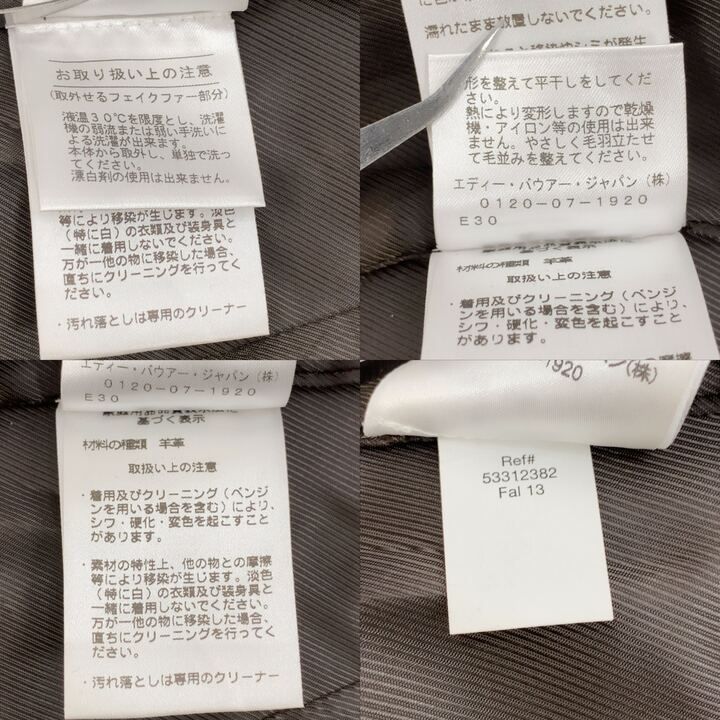 お取り扱い上の注意
(取外せるフェイクファー部分)
液温30℃を限度とし、洗濯
機の弱流または弱い手洗いに
よる洗濯が出来ます。
本体から取外し、単独で洗っ
てください。
漂白剤の使用は出来ません。
等により移染が生じます。淡色
(特に白)の衣類及び装身具と
一緒に着用しないでください。
万が一他の物に移染した場合、
直ちにクリーニングを行ってく
ださい。
・汚れ落としは専用のクリーナー
濡れたまま放置しないでください。
移染やシミが発生
形を整えて平干しをしてくだ
さい。
熱により変形しますので乾燥
機・アイロン等の使用は出来
ません。やさしく毛羽立たせ
て毛並みを整えてください。
エディー・バウアー・ジャパン(株)
0120-07-1920
E30
材料の種類 羊革
取扱い上の注意
・着用及びクリーニング(ベンジ
ンを用いる場合を含む)により、
シワ・硬化・変色を起こすこと
があります。
エディー・バウアー・ジャパン(株)
0120-07-1920
E30
家庭用品品質表示法に
基づく表示
材料の種類 羊革
取扱い上の注意
・着用及びクリーニング(ベンジ
ンを用いる場合を含む)により、
シワ・硬化・変色を起こすこと
があります。
・素材の特性上、他の物との摩擦
等により移染が生じます。淡色
(特に白)の衣類及び装身具と
一緒に着用しないでください。
万が一他の物に移染した場合、
直ちにクリーニングを行ってく
ださい。
・汚れ落としは専用のクリーナー
ン(株)
1920
Ref#
53312382
Fal 13